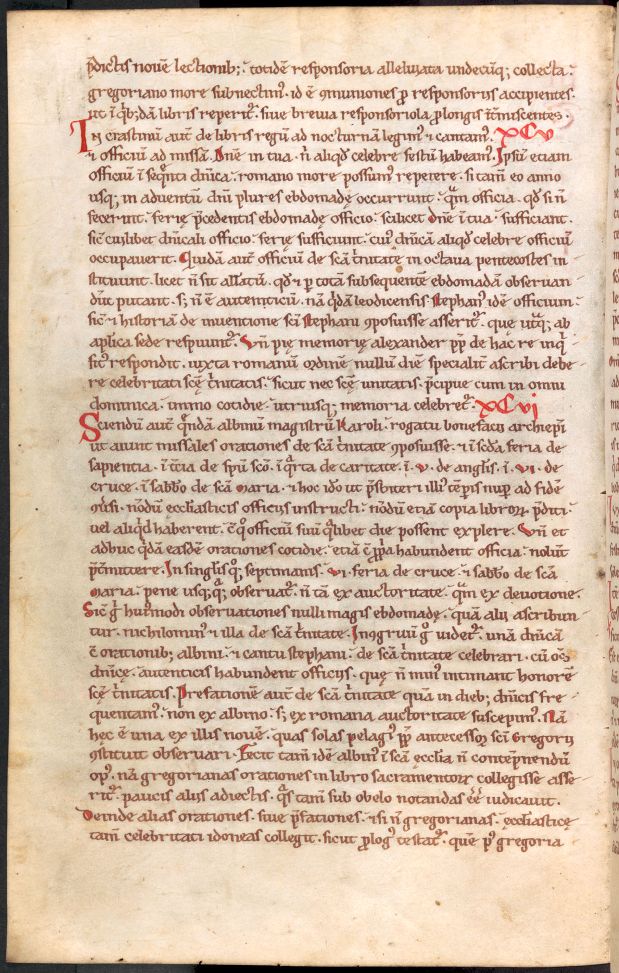 p̄dictis nouē lectionib; · totidē responsoria alleluiata undecūq; collecta ·
gregoriano more subnectimꝰ · id ē ꝯmuniones ꝓ responsoriis accipientes ·
ut ī qͥb;dā libris reperitᷣ · siue breuia responsoriola ꝓlongis īt̄miscentes ·
In crastinū aut̄ de libris regū ad nocturnā legimꝰ ⁊ cantamꝰ · XCV
⁊ officiū ad missā · Dn̄e in tua · n̄ aliqd̓ celebre festū habeamꝰ · Ipsū etiam
officiū ī seqn̄ti dn̄ica · romano more possumꝰ repetere · si tam̄ eo anno
usq; in aduentū dn̄i plures ebdomadę occurrunt · qͣm officia · qd̓ si n̄
fecerint · ferię p̄cedentis ebdomadę officio · scilicet dn̄e ī tua · sufficiant ·
sic̄ cuilibet dn̄icali officio · ferię sufficiunt · cuiꝰ dn̄icā aliqd̓ celebre officiū
occupauerit · Quidā aut̄ officiū de scā t̓nitate in octaua pentecostes in-
stituunt · licet n̄ sit allatū · qd̓ ⁊ ꝑ totā subsequentē ebdomadā obseruan-
dū putant · s; n̄ ē autenticū · nā qͥdā leodicensis stephanꝰ idē officium ·
sic̄ ⁊ historiā de inuentione scī stephani ꝯposuisse asseritᷣ · que utᷓq; ab
aplica sede respuuntᷣ · Vn̄ pię memorię alexander pp̄ de hac re inqͥ-
sitꝰ respondit · iuxta romanū ordinē nullū diē specialit̄ ascribi debe-
re celebritati scę t̓nitatis · sicut nec scę unitatis · p̄cipue cum in omni
dominica · immo cotidie · utriusq; memoria celebretᷣ · XCVI
Sciendū aut̄ qͦndā albinū magistrū karoli · rogatu bonefacii archiepi
ut aiunt missales orationes de scā t̓nitate ꝯposuisse · ⁊ ī scd̄a feria de
sapientia · ī t̓cia de spū scō · ī qͣrta de caritate · ī · v · de anglis · ī · vi · de
cruce · ī sabb̄o de scā maria · ⁊ hoc id̄o ut p̄sbiteri illiꝰ tēpis nup̄ ad fidē
ꝯūsi · nōdū ecclīasticis officiis instructi · nōdū etiā copia libroꝝ p̄diti ·
uel aliqd̓ haberent · ē qͦ officiū suū qͣlibet die possent explere · Vn̄ et
adhuc qͥdā easdē orationes cotidie · etiā ē ꝓpͥa habundent officia · nolūt
p̄t̓mittere · In singłis qͦq; septimanis · vi · feria de cruce · ⁊ sabb̄o de scā
maria · pene usq;qͣq; obseruatᷣ · n̄ tā ex auctoritate · qͣm ex deuotione ·
Sic̄ gͦ huiꝰmodi obseruationes nulli magis ebdomadę · quā alii ascribun-
tur · nichilominꝰ ⁊ illa de scā t̓nitate · Incōgruū gͦ uidetᷣ · unā dn̄icā
ē orationib; albini · ⁊ cantu stephani · de scā t̓nitate celebrari · cū om̄s
dn̄icę · autenticis habundent officiis · quę n̄ minꝰ intimant honorē
scę t̓nitatis · Prefationē aut̄ de scā t̓nitate quā in dieb; dn̄icis fre-
quentamꝰ · non ex albino · s; ex romana auctoritate suscepimꝰ · Nā
hec ē una ex illis nouē · quas solas pelagiꝰ pp̄ antecessor scī Gregorii
ꝯstituit obseruari · Fecit tam̄ idē albinꝰ ī scā ecclīa n̄ contēpnendū
opꝰ · nā gregorianas orationes in libro sacramentoꝝ collegisse asse-
ritᷣ · paucis aliis adiectis · qͣs tam̄ sub obelo notandas ēē iudicauit ·
Deinde alias orationes · siue p̄fationes · ⁊ si n̄ gregorianas · ęcclīasticę
tam̄ celebritati idoneas collegit · sicut ꝓlogꝰ testatᷣ · quē pꝰ gregoria-